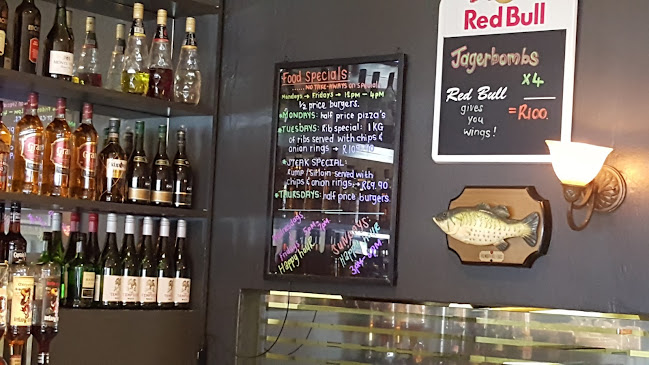 Food Specials
.....NO TAKE-AWAYS ON SPECIAL!
Mondays → Fridays → 12pm - 4pm
½ price burgers.
MONDAYS: half price pizza's
TUESDAYS: Rib special: 1 KG
of ribs served with chips &
onion rings →
STEAK SPECIAL:
Rump/Sirloin served with
chips & onion rings, → R69.90
THURSDAYS: half price burgers
Happy hour
SUNDAYS:
Happy hour
Red Bull
Jagerbombs
X4
Red Bull
gives
you
wings!
=R100.